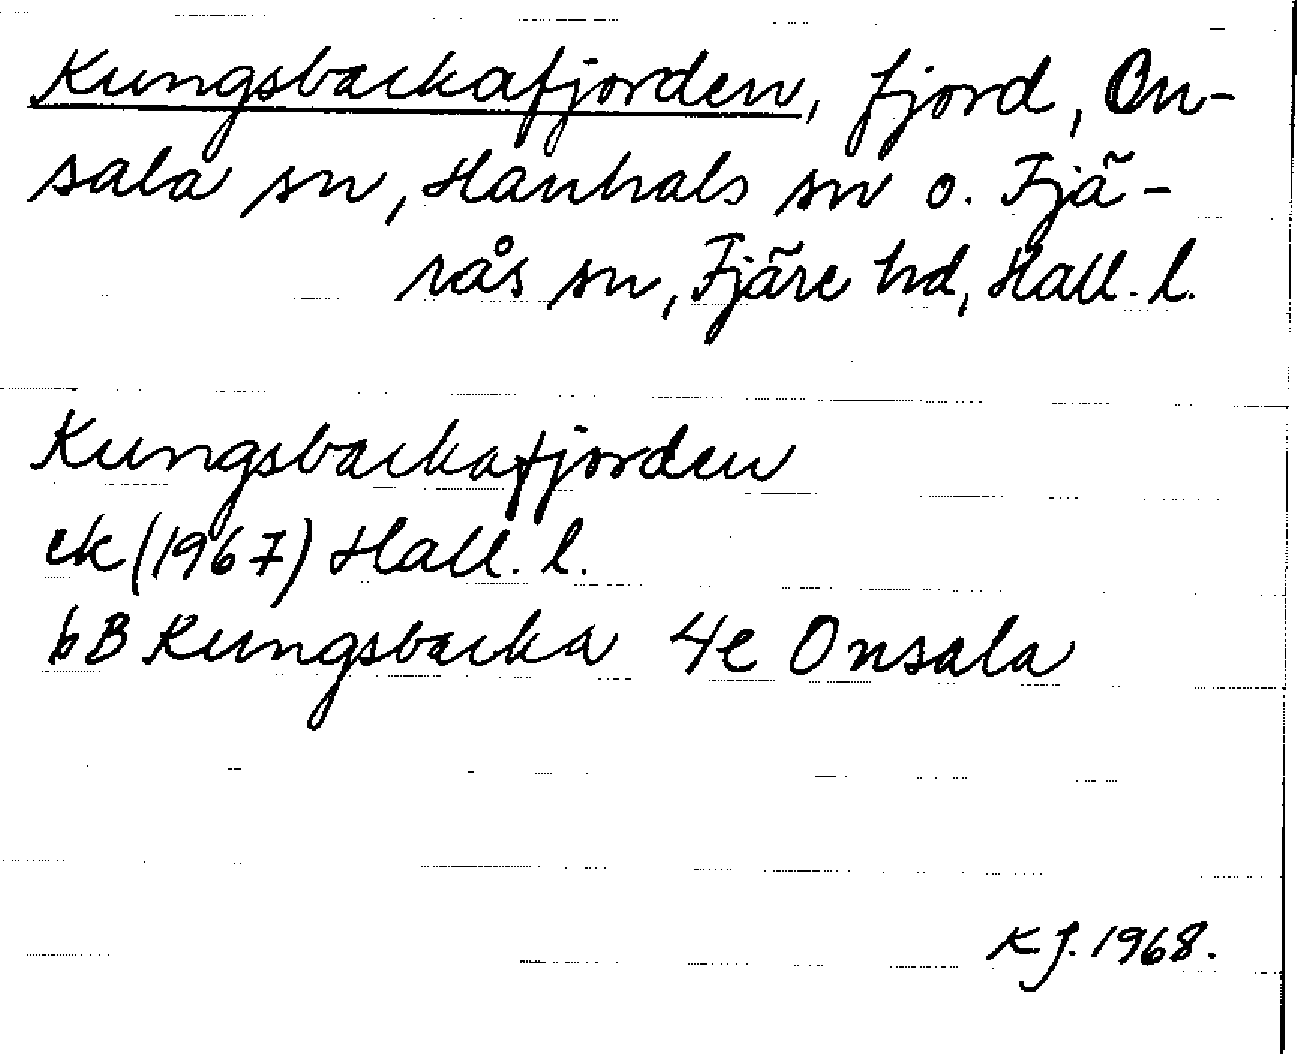 Kungsbackafjorden, fjord, On-
sala sn, Hanhals sn o. Fjä-
rås sn, Fjäre hd, Hall. l.
Kungsbackafjorden
ek (1967) Hall. l.
6B Kungsbacka 4e Onsala
KJ. 1968.